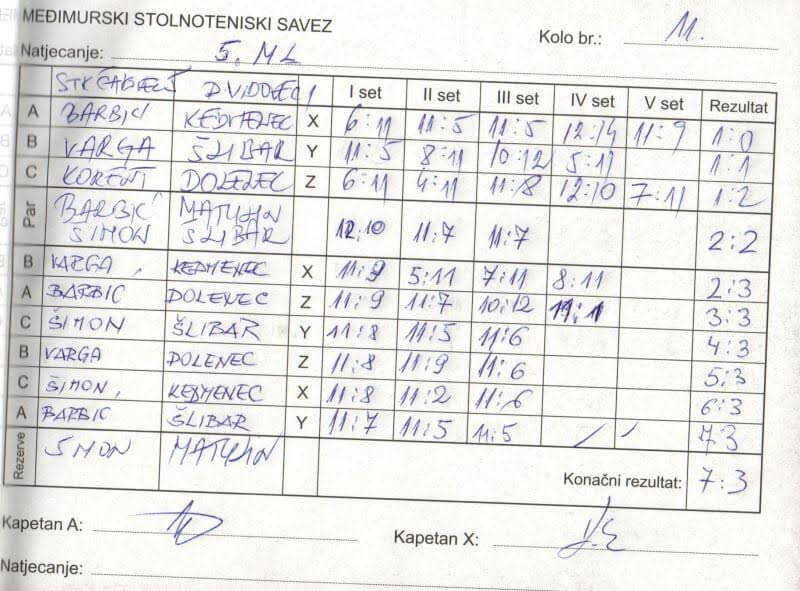 MEĐIMURSKI STOLNOTENISKI SAVEZ
Kolo br.: 11.
Natjecanje: 5. ML
I set II set III set IV set V set Rezultat
A BARBIĆ KEDMENEC X 6:11 11:5 11:5 12:14 11:9 1:0
B VARGA ŠLIBAR Y 11:5 8:11 10:12 5:11 1:1
C KORENT DOLENEC Z 6:11 4:11 11:8 12:10 7:11 1:2
Par BARBIĆ MATULIN
ŠIMON ŠLIBAR 12:10 11:7 11:7 2:2
B VARGA KEDMENEC X 11:9 5:11 7:11 8:11 2:3
A BARBIĆ DOLENEC Z 11:9 11:7 10:12 3:3
C ŠIMON ŠLIBAR Y 11:8 11:5 11:6 4:3
B VARGA DOLENEC Z 11:8 11:9 11:6 5:3
C ŠIMON, KEDMENEC X 11:8 11:2 11:6 6:3
A BARBIĆ ŠLIBAR Y 11:7 11:5 11:5 7:3
Rezerve ŠIMON MATULIN
Konačni rezultat: 7:3
Kapetan A:
Kapetan X:
Natjecanje: